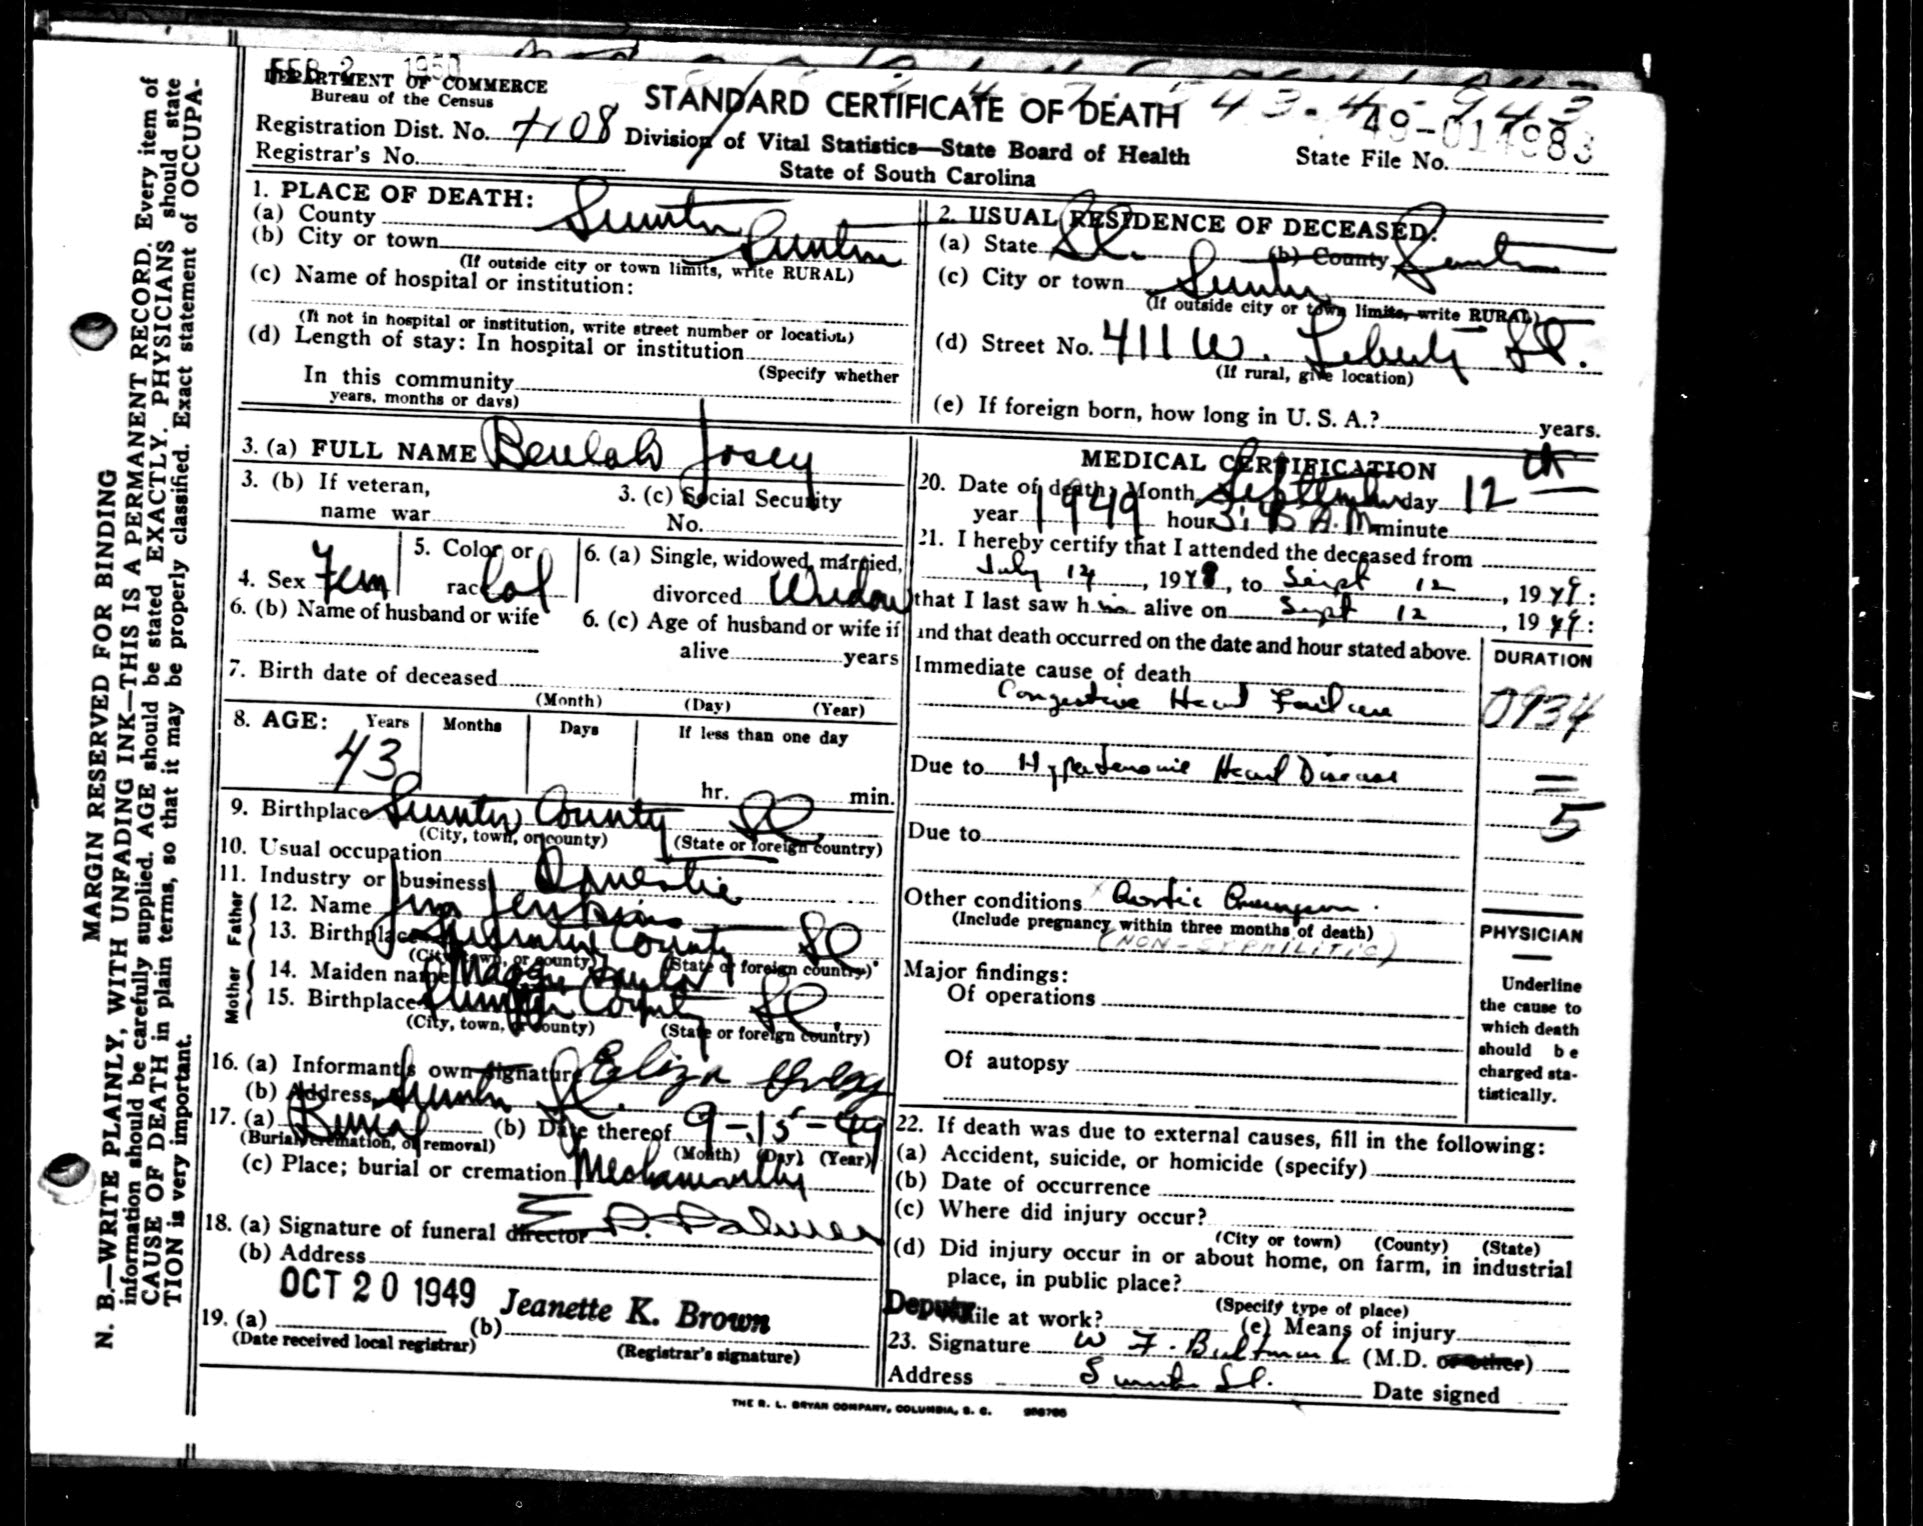 FEB 2 1950
DEPARTMENT OF COMMERCE
Bureau of the Census
STANDARD CERTIFICATE OF DEATH
Registration Dist. No. 4108
Division of Vital Statistics—State Board of Health
49-014983
State File No.
Registrar's No.
State of South Carolina
1. PLACE OF DEATH:
(a) County Sumter
(b) City or town Sumter
(If outside city or town limits, write RURAL)
(c) Name of hospital or institution:
(If not in hospital or institution, write street number or location)
(d) Length of stay: In hospital or institution
(Specify whether
In this community
years, months or days)
2. USUAL RESIDENCE OF DECEASED:
(a) State S.C. (b) County Sumter
(c) City or town Sumter
(If outside city or town limits, write RURAL)
(d) Street No. 411 W. Liberty St.
(If rural, give location)
(e) If foreign born, how long in U. S. A.? years.
3. (a) FULL NAME Beulah Josey
3. (b) If veteran,
name war
3. (c) Social Security
No.
4. Sex Fem
5. Color or
race Col
6. (a) Single, widowed, married,
divorced Widow
6. (b) Name of husband or wife
6. (c) Age of husband or wife if
alive years
7. Birth date of deceased
(Month) (Day) (Year)
8. AGE: Years Months Days If less than one day
43
hr. min.
9. Birthplace Sumter County S.C.
(City, town, or county) (State or foreign country)
10. Usual occupation
11. Industry or business Domestic
Father
12. Name Jim Jenkins
13. Birthplace Sumter County S.C.
(City, town, or county) (State or foreign country)
Mother
14. Maiden name
15. Birthplace Sumter County S.C.
(City, town, or county) (State or foreign country)
16. (a) Informant's own signature Eliza
(b) Address Sumter S.C.
17. (a) Burial (b) Date thereof 9-15-49
(Burial, cremation, or removal) (Month) (Day) (Year)
(c) Place; burial or cremation
18. (a) Signature of funeral director E. P. Palmer
(b) Address
OCT 20 1949 Jeanette K. Brown
19. (a) (b)
(Date received local registrar) (Registrar's signature)
MEDICAL CERTIFICATION
20. Date of death: Month September day 12th
year 1949 hour A.M. minute
21. I hereby certify that I attended the deceased from
July 14, 1948, to Sept 12, 1949:
that I last saw h alive on Sept 12, 1949:
and that death occurred on the date and hour stated above.
DURATION
Immediate cause of death
Congestive Heart Failure
0934
Due to Hypertensive Heart Disease
5
Due to
Other conditions Aortic Aneurysm.
(Include pregnancy within three months of death)
(NON-SYPHILITIC)
PHYSICIAN
Major findings:
Of operations
Of autopsy
Underline
the cause to
which death
should be
charged sta-
tistically.
22. If death was due to external causes, fill in the following:
(a) Accident, suicide, or homicide (specify)
(b) Date of occurrence
(c) Where did injury occur?
(City or town) (County) (State)
(d) Did injury occur in or about home, on farm, in industrial
place, in public place?
(Specify type of place)
Deputy
While at work? (e) Means of injury
23. Signature W. F. Bultman (M.D. or other)
Address Sumter S.C. Date signed
THE R. L. BRYAN COMPANY, COLUMBIA, S. C.
MARGIN RESERVED FOR BINDING
N. B.—WRITE PLAINLY, WITH UNFADING INK—THIS IS A PERMANENT RECORD. Every item of
information should be carefully supplied. AGE should be stated EXACTLY. PHYSICIANS should state
CAUSE OF DEATH in plain terms, so that it may be properly classified. Exact statement of OCCUPA-
TION is very important.